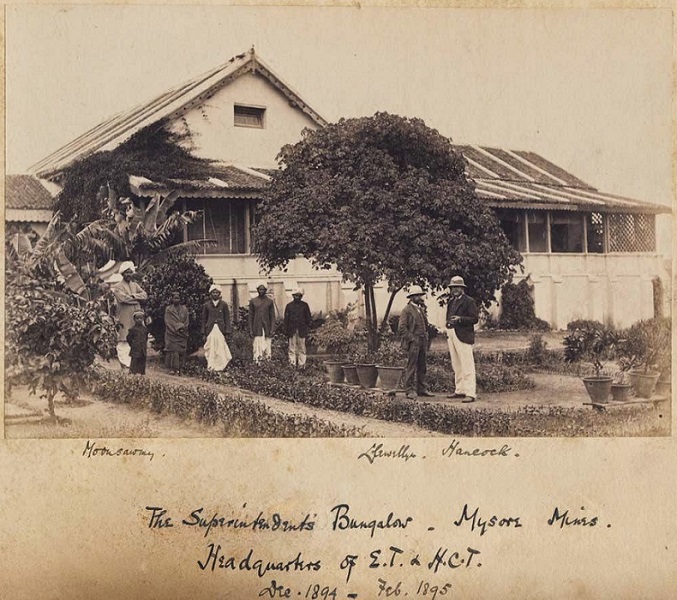 Moonsawmy. Llewellyn. Hancock.
The Superintendents' Bungalow - Mysore Mines.
Headquarters of E.T. & H.C.T.
Dec. 1894 - Feb. 1895